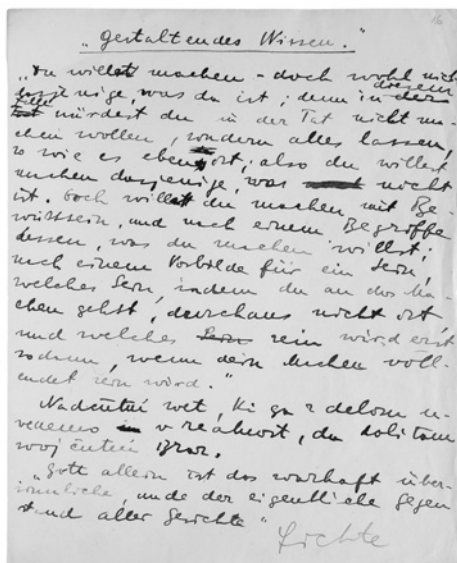 „gestaltendes Wissen."
„Du willst machen – doch wohl nicht
dasjenige, was da ist; denn in diesem
Falle würdest du in der Tat nicht ma-
chen wollen, sondern alles lassen,
so wie es eben ist; also du willst
machen dasjenige, was nicht
ist. Doch willst du machen mit Be-
wusstsein, und nach einem Begriffe
dessen, was du machen willst;
nach einem Vorbilde für ein Sein,
welches Sein, indem du an das Ma-
chen gehst, durchaus nicht ist
und welches sein wird erst
sodann, wenn dein Machen voll-
endet sein wird."
Nadčutni svet, ki ga z delom u-
vedemo v realnost, da dobi tam
svoj čutni izraz.
„Gott allein ist das warhaft über-
sinnliche, und der eigentliche Gegen
stand aller Gesichte"
Fichte